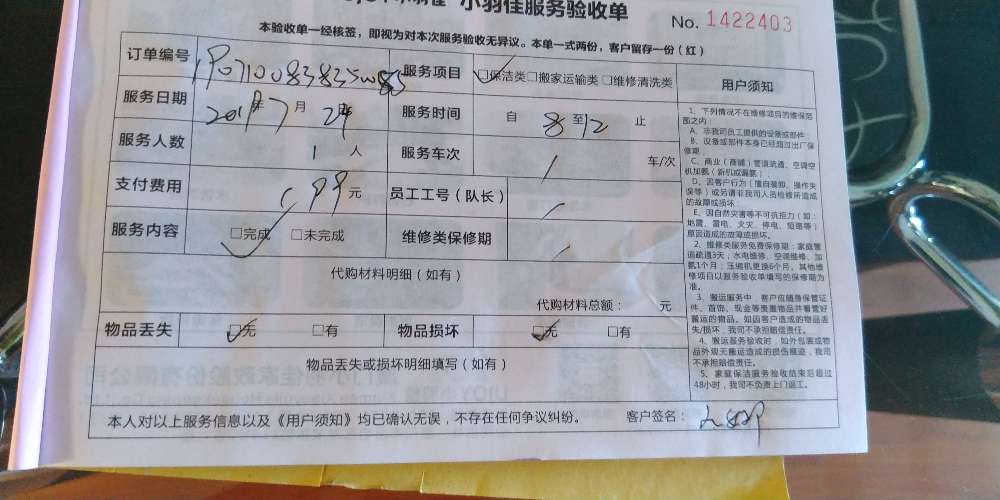 小羽佳服务验收单
No. 1422403
本验收单一经核签，即视为对本次服务验收无异议。本单一式两份，客户留存一份（红）
订单编号
服务项目 □保洁类□搬家运输类□维修清洗类
用户须知
服务日期 年7月 日
服务时间 自 8 至 12 止
服务人数 1 人
服务车次 / 车/次
支付费用 199 元
员工工号（队长） /
服务内容 □完成 □未完成
维修类保修期 /
代购材料明细（如有）
代购材料总额： 元
物品丢失 □无 □有 物品损坏 □无 □有
物品丢失或损坏明细填写（如有）
1、下列情况不在维修项目的维保范
围之内：
A、非我司员工提供的设备或部件
B、设备或部件本身已经超过出厂保
修期；
C、商业（商铺）管道疏通、空调空
机加氟（新机或漏氟）；
D、因客户行为（擅自装卸、操作失
误等）或另请非我司人员检修所造成
的故障或损坏
E、因自然灾害等不可抗拒力（如：
地震、雷电、火灾、停电、短路等）
原因造成的故障或损坏。
2、维修类服务免费保修期：家庭管
道疏通3天；水电维修、空调维修、加
氟1个月；压缩机更换6个月。其他维
修项目以服务验收单填写的保修期为
准。
3、搬运服务中，客户应随身保管证
件、首饰、现金等贵重物品并看管好
搬运的物品。如因客户造成的物品丢
失/损坏，我司不承担赔偿责任。
4、搬运服务验收时，如外包装或物
品外观无搬运造成的损伤痕迹，我司
不承担赔偿责任。
5、家庭保洁服务验收结束后超过
48小时，我司不负责上门返工。
本人对以上服务信息以及《用户须知》均已确认无误，不存在任何争议纠纷。 客户签名：